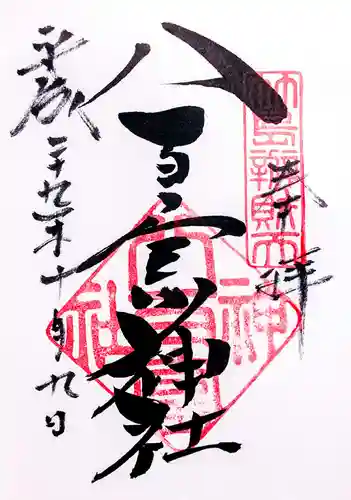 奉拝
竹島辨財天
八百富神社
神社
平成二十九年十月九日